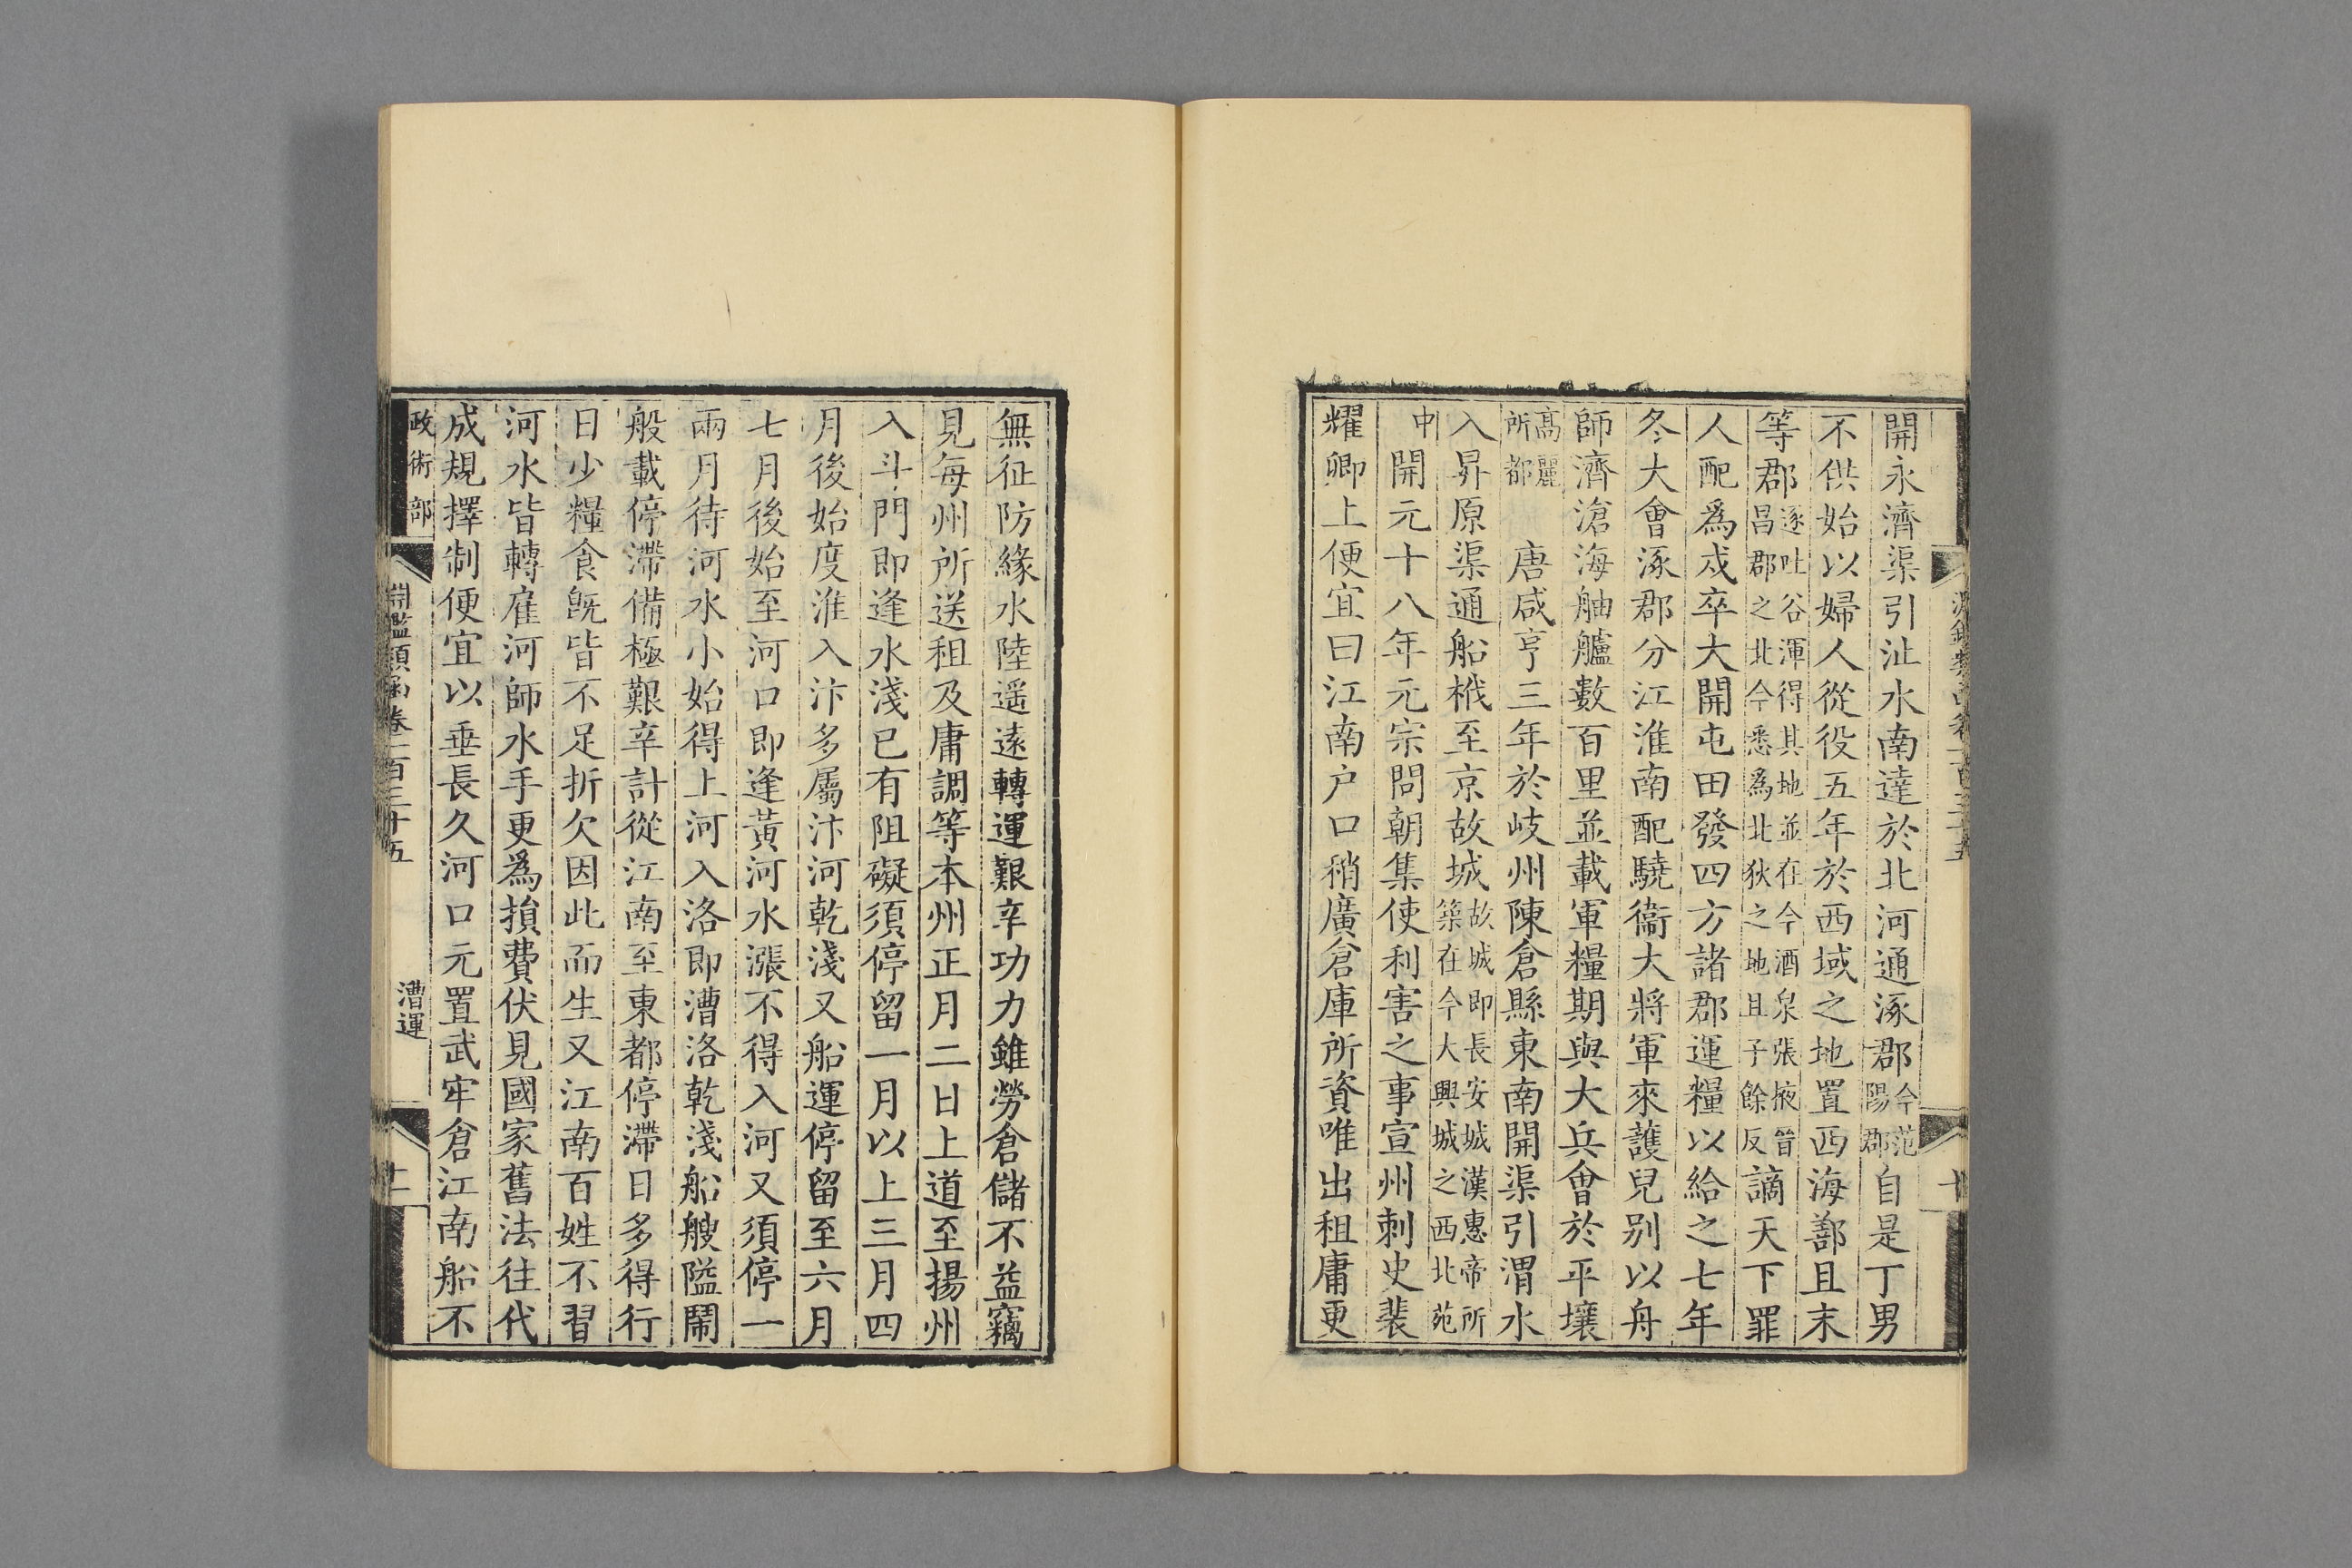 開永濟渠引沚水南達於北河通涿郡今范陽郡自是丁男
不供始以婦人從役五年於西域之地置西海鄯且末
等郡逐吐谷渾得其地並在今酒泉張掖晉昌郡之北今悉爲北狄之地且子餘反謫天下罪
人配爲戍卒大開屯田發四方諸郡運糧以給之七年
冬大會涿郡分江淮南配驍衞大將軍來護兒别以舟
師濟滄海舳艫數百里並載軍糧期與大兵會於平壤
高麗所都　唐咸亨三年於岐州陳倉縣東南開渠引渭水
入昇原渠通船栰至京故城故城即長安城漢惠帝所築在今大興城之西北苑
中開元十八年元宗問朝集使利害之事宣州刺史裴
耀卿上便宜曰江南户口稍廣倉庫所資唯出租庸更
無征防緣水陸遥遠轉運艱辛功力雖勞倉儲不益竊
見每州所送租及庸調等本州正月二日上道至揚州
入斗門即逢水淺已有阻礙須停留一月以上三月四
月後始度淮入汴多屬汴河乾淺又船運停留至六月
七月後始至河口即逢黃河水漲不得入河又須停一
兩月待河水小始得上河入洛即漕洛乾淺船艘隘鬧
般載停滯備極艱辛計從江南至東都停滯日多得行
日少糧食既皆不足折欠因此而生又江南百姓不習
河水皆轉雇河師水手更爲損費伏見國家舊法往代
成規擇制便宜以垂長久河口元置武牢倉江南船不
政術部　淵鑑類函卷一百三十五　漕運　十一